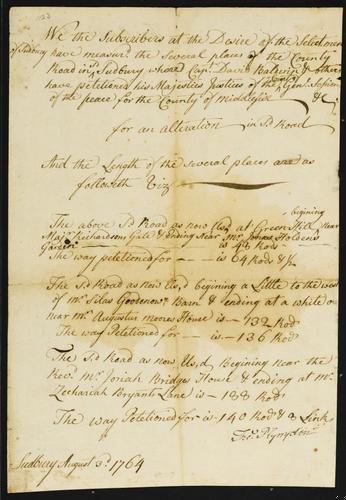 We the Subscribers at the Desire of the Selectmen
of Sudbury have measurd the several places of the County
Road in sd Sudbury where Capt. David Baldwin & others
have petitioned his Majesties Justices of the Genll. Session
of the peace for the County of Middlesex &c
for an alteration in Sd Road
And the Length of the several places are as
followeth Viz
begining
The above Sd Road as now Usd at Green Hill near
Majr. Richardsons Gate & Ending near Mr. Holden's
Garden is 48 Rods
The way petitioned for is 64 Rods & 1/2
The Sd Road as now Us,d begining a Little to the west
of Mr Silas Goodenows Barn & ending at a white o
near Mr Augustus moores House is 132 Rods
The way Petitioned for is 136 Rods
The Sd Road as now Us,d Begining near the
Revd. Mr Josiah Bridges House & ending at Mr
Zechariah Bryants Lane is 188 Rods
The way Petitioned for is 140 Rods & 3 Links
Tho. Plympton
Sudbury August 3d. 1764